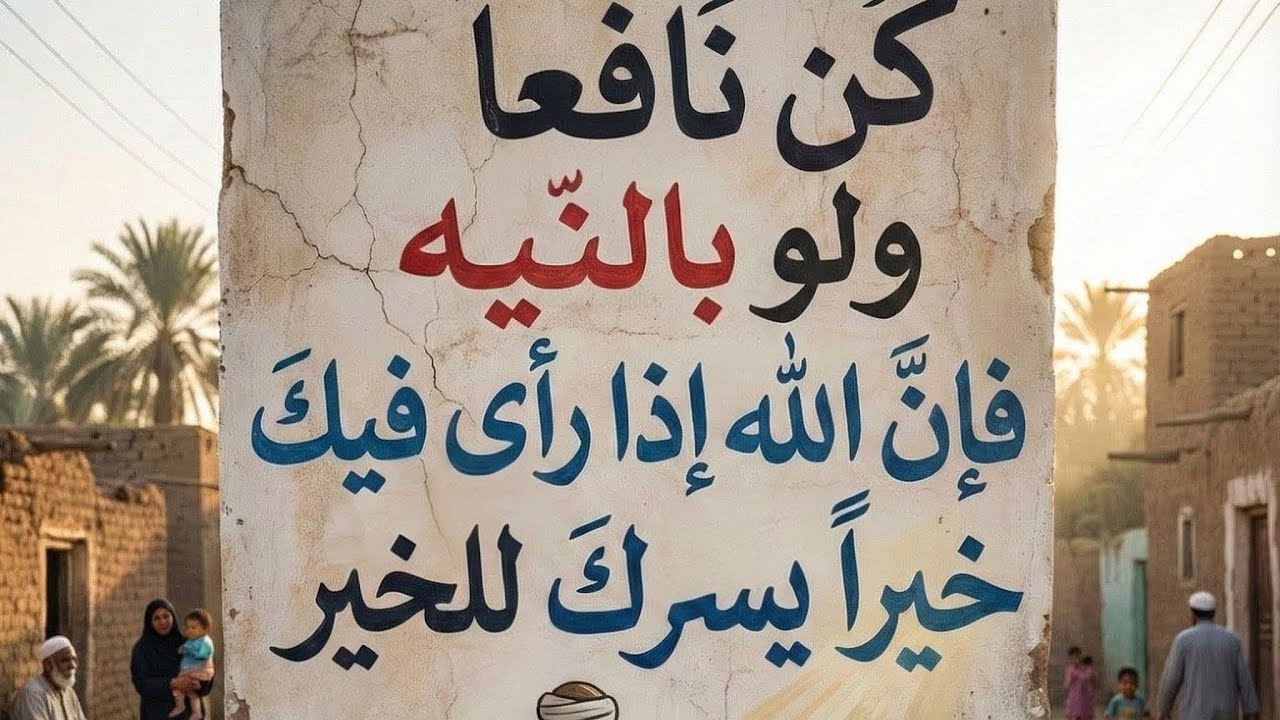 كَن نَافعا
ولو بالنّيه
فإنَّ الله إذا رأى فيكَ
خيراً يسركَ للخير